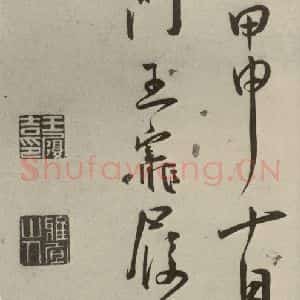 甲申十月
門王寵履
王履吉印
雅宜山人
Shufawang.CN